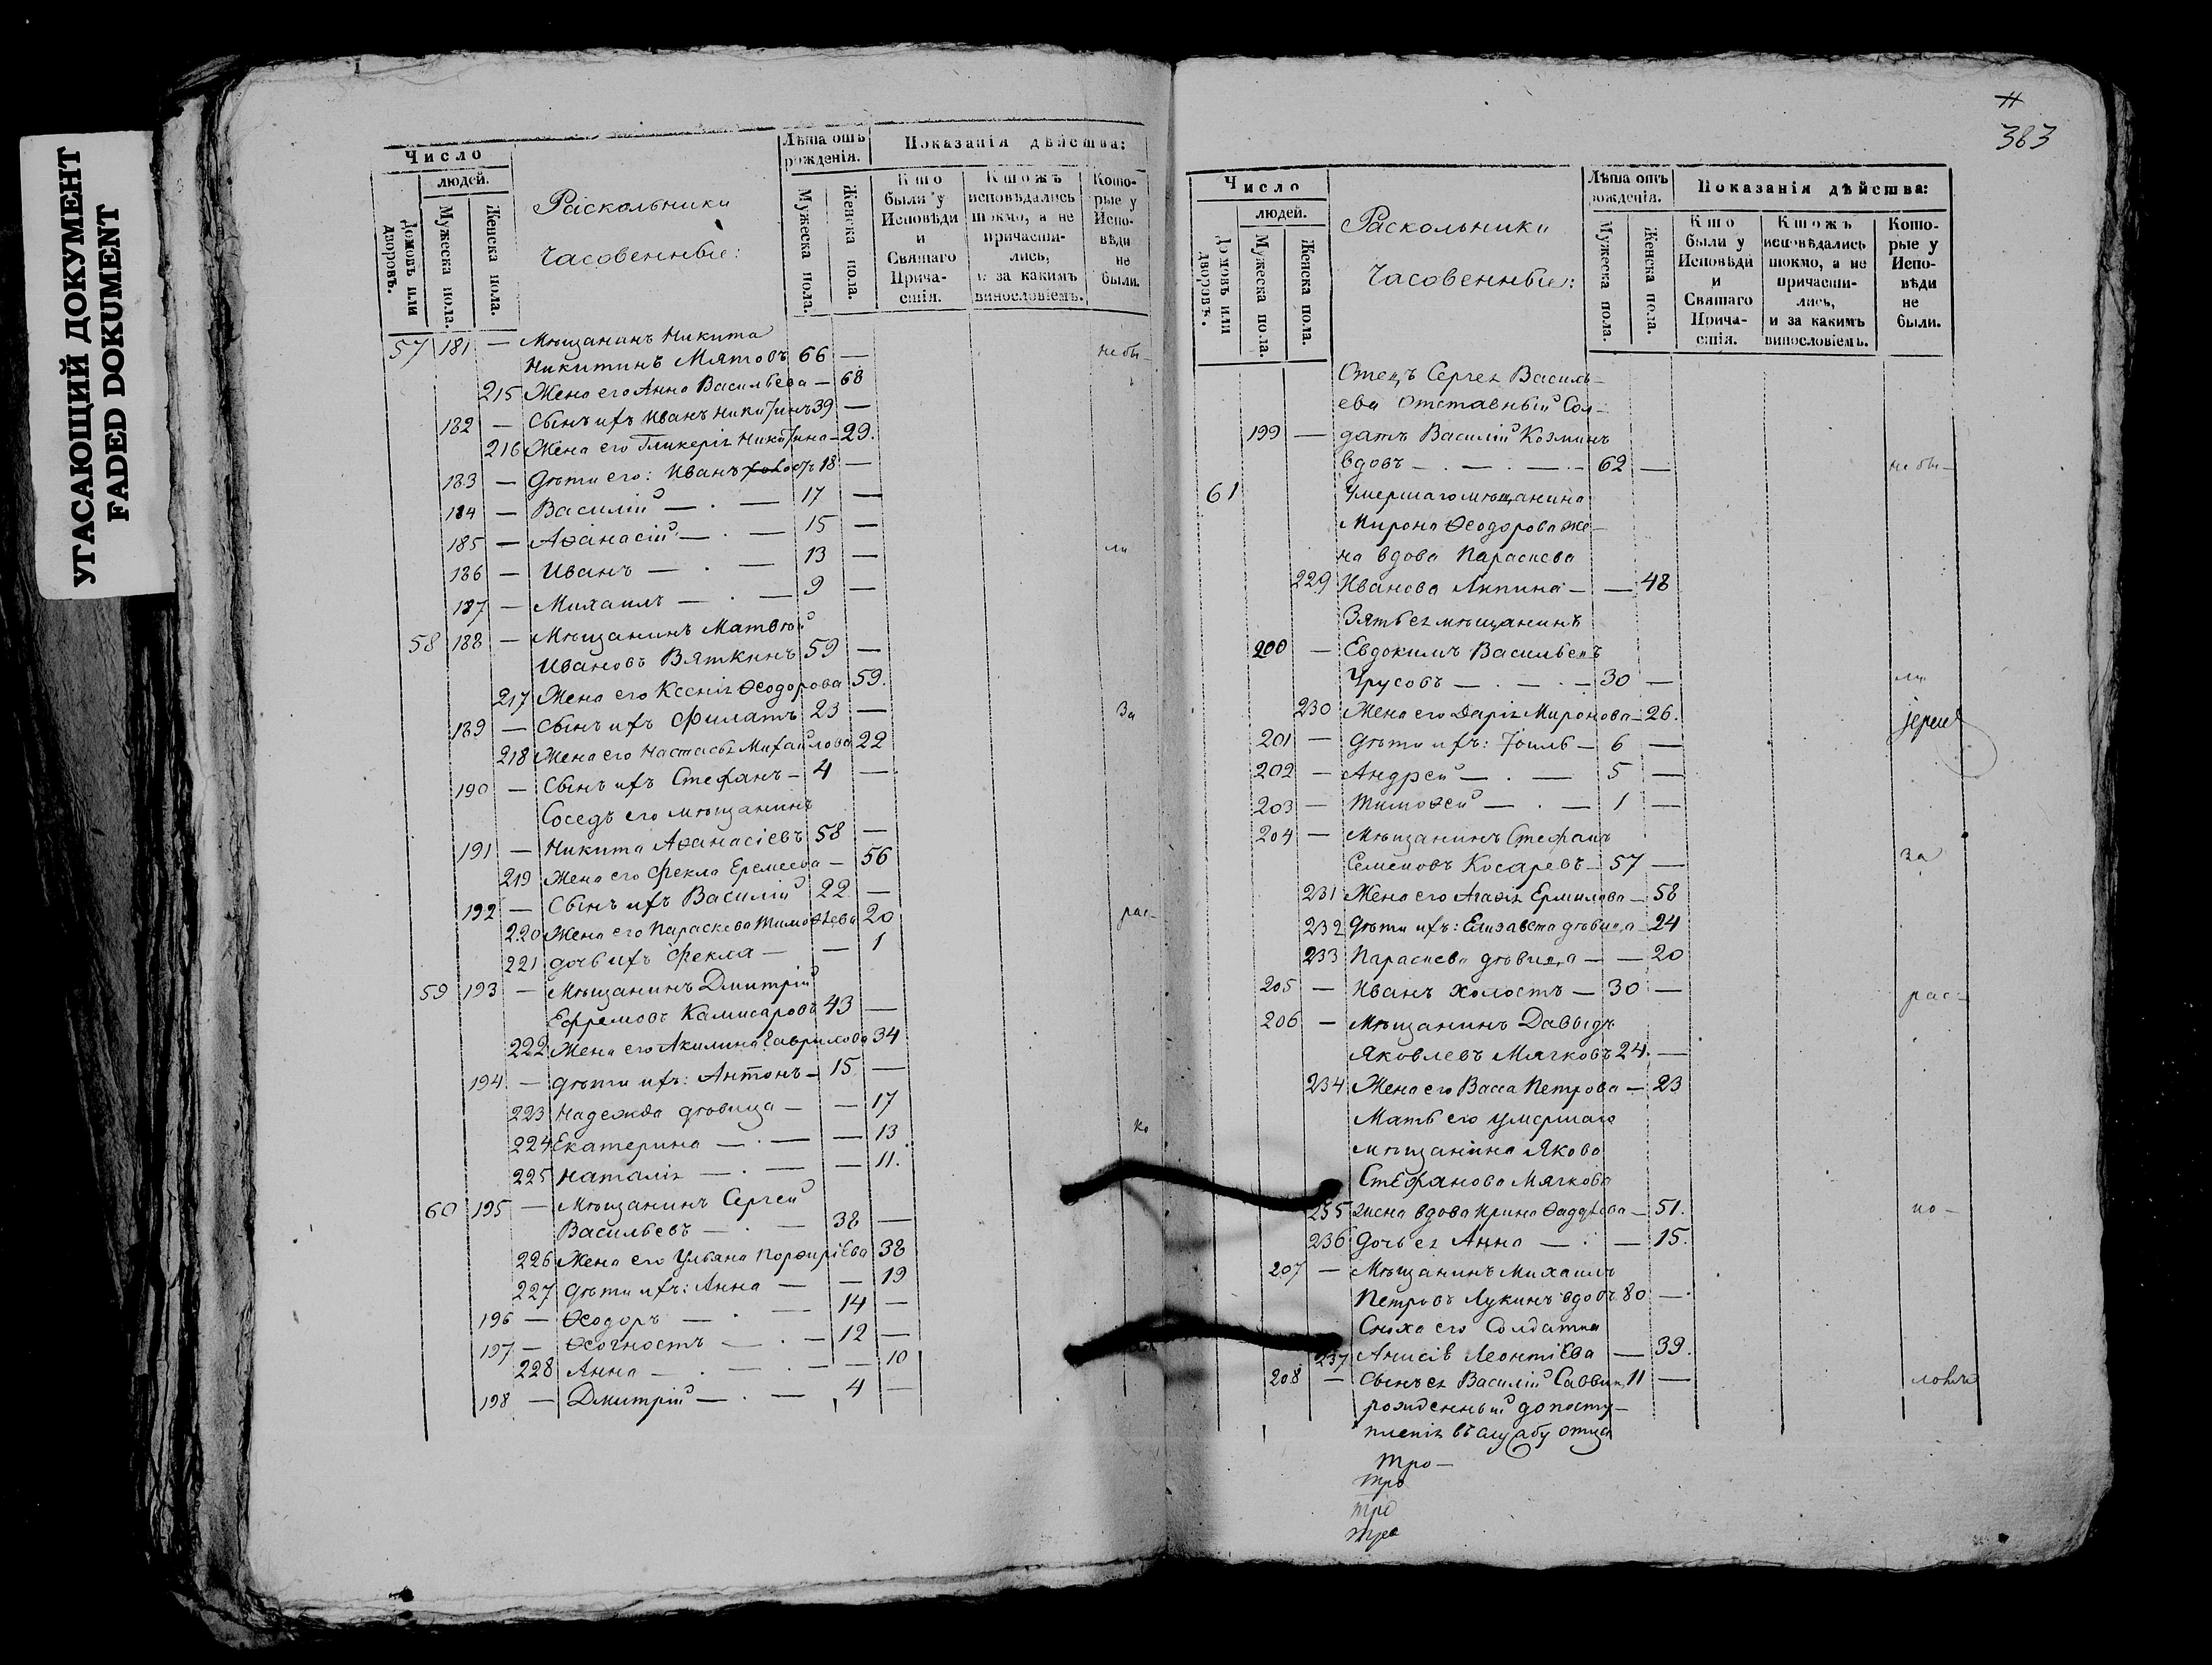 УГАСАЮЩИЙ ДОКУМЕНТ
FADED DOKUMENT
Число
людей.
Домовъ или дворовъ.
Мужеска пола.
Женска пола.
Раскольники
Часовенные:
Лѣта отъ рожденія.
Мужеска пола.
Женска пола.
Показанія дѣйства:
Кто были у Исповѣди и Святаго Причастія.
Кто жъ исповѣдались токмо, а не причастились, и за какимъ винословіемъ.
Которые у Исповѣди не были.
57 181 — Мѣщанинъ Никита
Никитинъ Мятовъ 66 — не бы-
215 Жена его Анна Васильева — 68
182 — Сынъ ихъ Иванъ Никитинъ 39 —
216 Жена его Гликерія Никитина — 29.
183 — Дѣти его: Иванъ холостъ 18 —
184 — Василій — . — 17 —
185 — Аѳанасій — . — 15 —
186 — Иванъ — . — 13 — ли
187 — Михаилъ — . — 9 —
58 188 — Мѣщанинъ Матвѣй
Ивановъ Вяткинъ 59 —
217 Жена его Ксенія Ѳеодорова 59.
189 — Сынъ ихъ Филатъ 23 — За
218 Жена его Настасья Михайлова 22
190 — Сынъ ихъ Стефанъ — 4 —
Соседъ его мѣщанинъ
191 — Никита Аѳанасіевъ 58 —
219 Жена его Фекла Еремеева — 56
192 — Сынъ ихъ Василій 22 —
220 Жена его Параскева Тимоѳѣева 20 рас-
221 дочь ихъ Фекла — — 1
59 193 — Мѣщанинъ Дмитрій
Ефремовъ Камисаровъ 43 —
222 Жена его Акилина Гаврилова 34
194 — дѣти ихъ: Антонъ — 15 —
223 Надежда дѣвица — — 17
224 Екатерина — . — — 13 ко
225 Наталія — . — — 11.
60 195 — Мѣщанинъ Сергей
Васильевъ — . — 38 —
226 Жена его Ульяна Порфиріева 38
227 дѣти ихъ: Анна — — 19
196 — Ѳеодоръ — . — 14 —
197 — Ѳеогностъ — . — 12 —
228 Анна — . — . — — 10
198 — Дмитрій — . — 4 —
11
383
Число
людей.
Домовъ или дворовъ.
Мужеска пола.
Женска пола.
Раскольники
Часовенные:
Лѣта отъ рожденія.
Мужеска пола.
Женска пола.
Показанія дѣйства:
Кто были у Исповѣди и Святаго Причастія.
Кто жъ исповѣдались токмо, а не причастились, и за какимъ винословіемъ.
Которые у Исповѣди не были.
Отецъ Сергея Василь-
ева Отставный Сол-
199 — датъ Василій Козминъ
вдовъ — . — . — . — 62 — не бы-
61 Умершаго мѣщанина
Мирона Ѳеодорова же-
на вдова Параскева
229 Иванова Липина — — 48
Зять ея мѣщанинъ
200 — Евдокимъ Васильевъ
Урусовъ — . — . — 30 — ли
230 Жена его Дарія Миронова — 26.
201 — дѣти ихъ: Іоиль — 6 —
202 — Андрей — . — 5 —
203 — Тимоѳей — . — 1 —
204 — Мѣщанинъ Стефанъ
Семеновъ Косаревъ — 57 — за
231 Жена его Агаѳія Ермилова — 58
232 Дѣти ихъ: Елизавета дѣвица — 24
233 Параскева дѣвица — — 20
205 — Иванъ холостъ — 30 — рас-
206 — Мѣщанинъ Давыдъ
Яковлевъ Мягковъ 24. —
234 Жена его Васса Петрова — 23
Мать его умершаго
мѣщанина Якова
Стефанова Мягкова
235 жена вдова Ирина Ѳаддѣева — 51. ко-
236 Дочь ея Анна — . — 15.
207 — Мѣщанинъ Михаилъ
Петровъ Лукинъ вдовъ 80 —
Сноха его Солдатка
237 Анисія Леонтіева — 39.
208 — Сынъ ея Василій Саввинъ 11 —
рожденный до посту-
пленія въ службу отца
тро-
тро
тро
тро